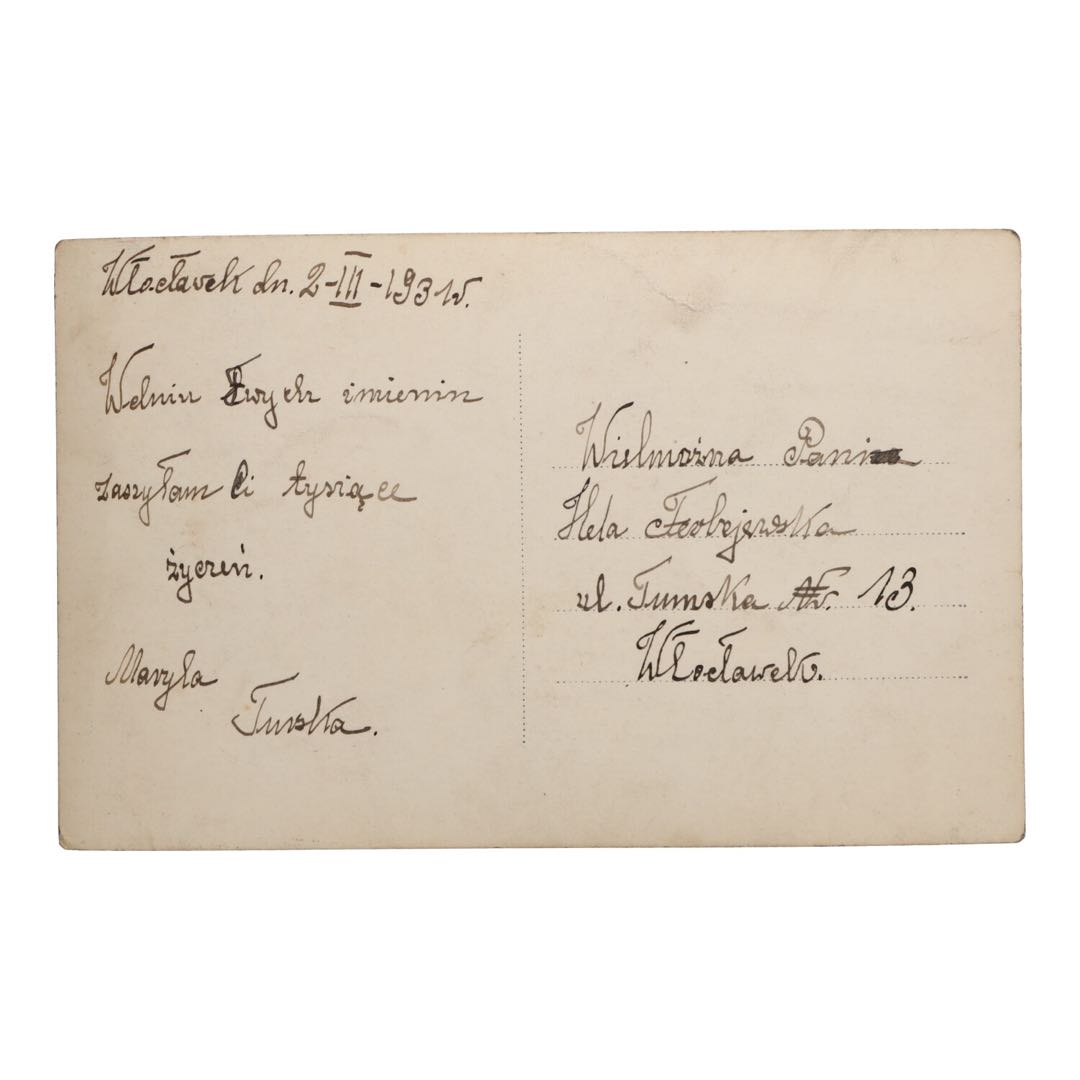 Włocławek dn. 2-III-1931r.
Wdniu Twych imienin
zaszyłam Ci tysiące
życzeń.
Maryla
Turska.
Wielmożna Pani
Hela
ul. Tumska Nr. 13.
Włocławek.